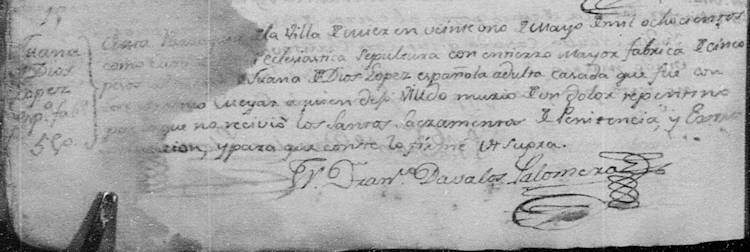 17
Juana
de Dios
Lopez
esp.ª fab.ª
5 p.s
En esta Parroquia de la Villa de en veinte uno de Mayo de mil ochocientos
como ecleciastica sepultura con entierro Mayor fabrica de cinco
pesos Juana de Dios Lopez española adulta casada que fue con
Cueyar a quien dejo Viudo murio de un dolor repentino
por que no recivió los Santos Sacramentos de Penitencia, y Extrema
uncion, y para que conste lo firmé ut supra.
Fr. Fran.co Davalos Palomera